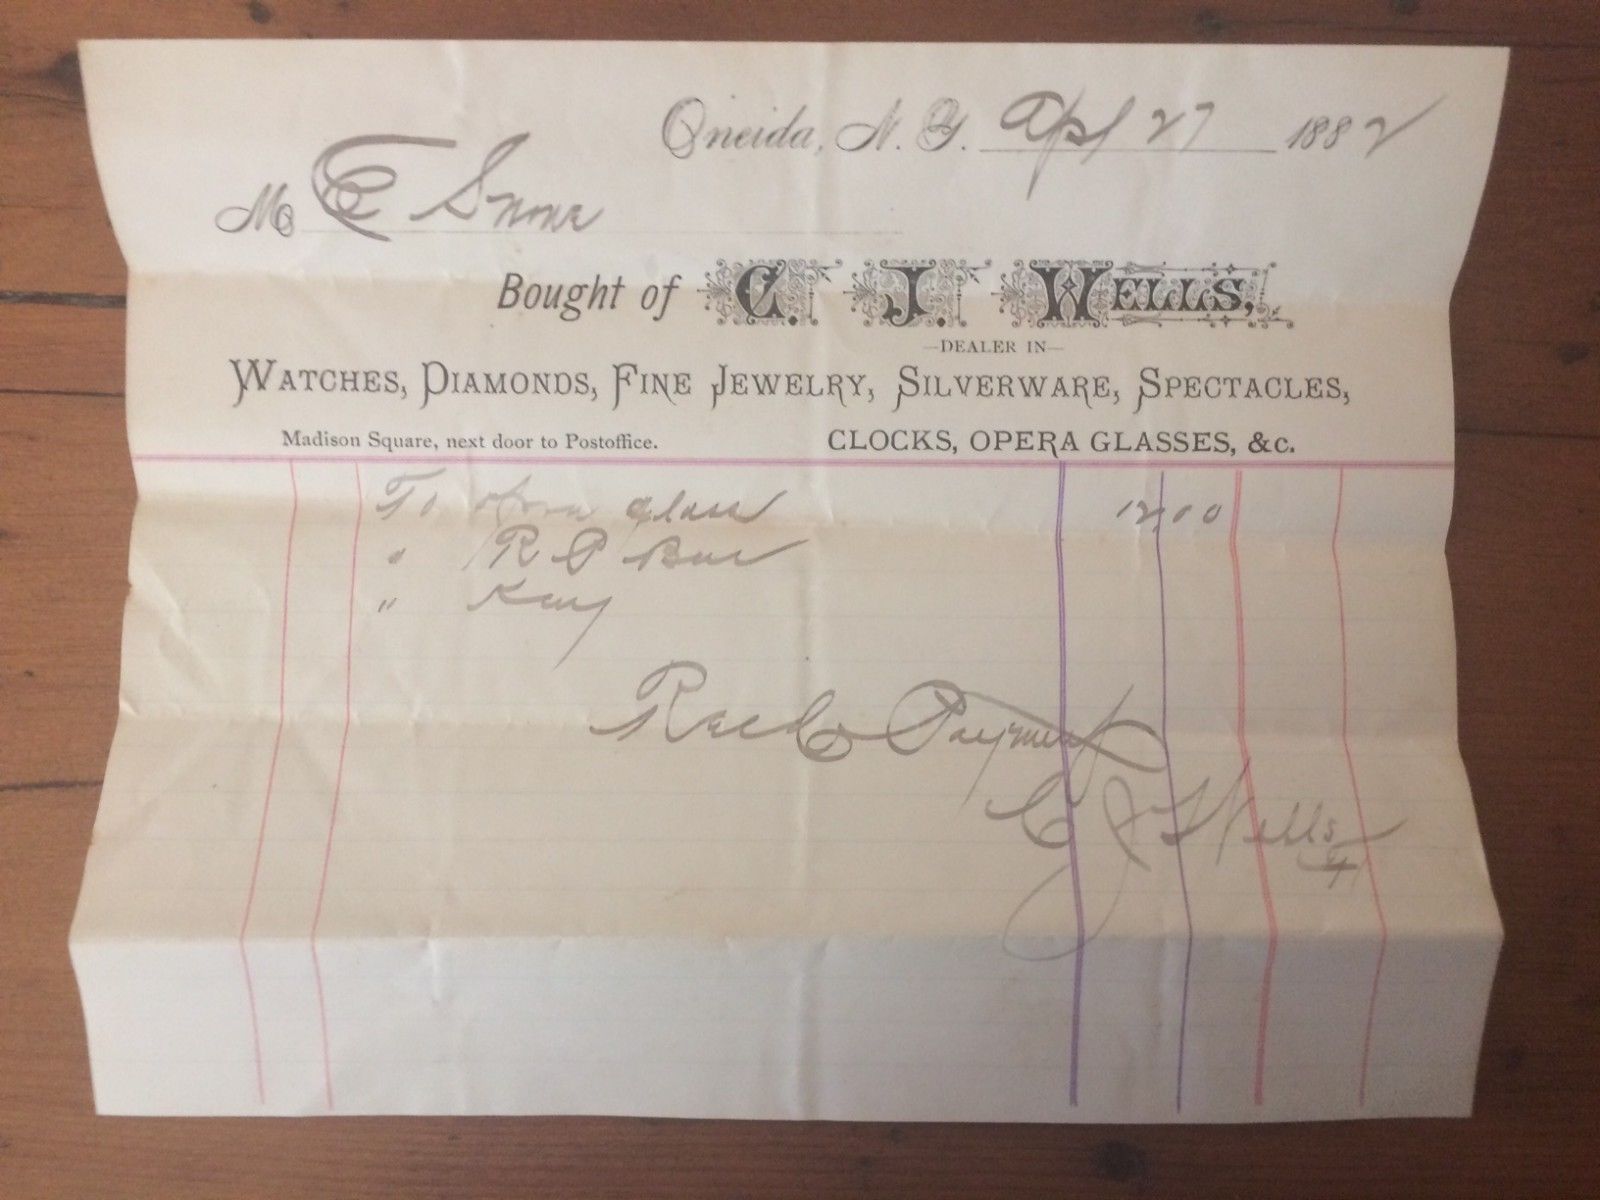 Oneida, N. Y. Apl 27 1882
M E Snow
Bought of C. J. WELLS,
—DEALER IN—
WATCHES, DIAMONDS, FINE JEWELRY, SILVERWARE, SPECTACLES,
Madison Square, next door to Postoffice. CLOCKS, OPERA GLASSES, &c.
To Opera Glass 12,00
" R P Bar
" Key
Recd Payment
C J Wells